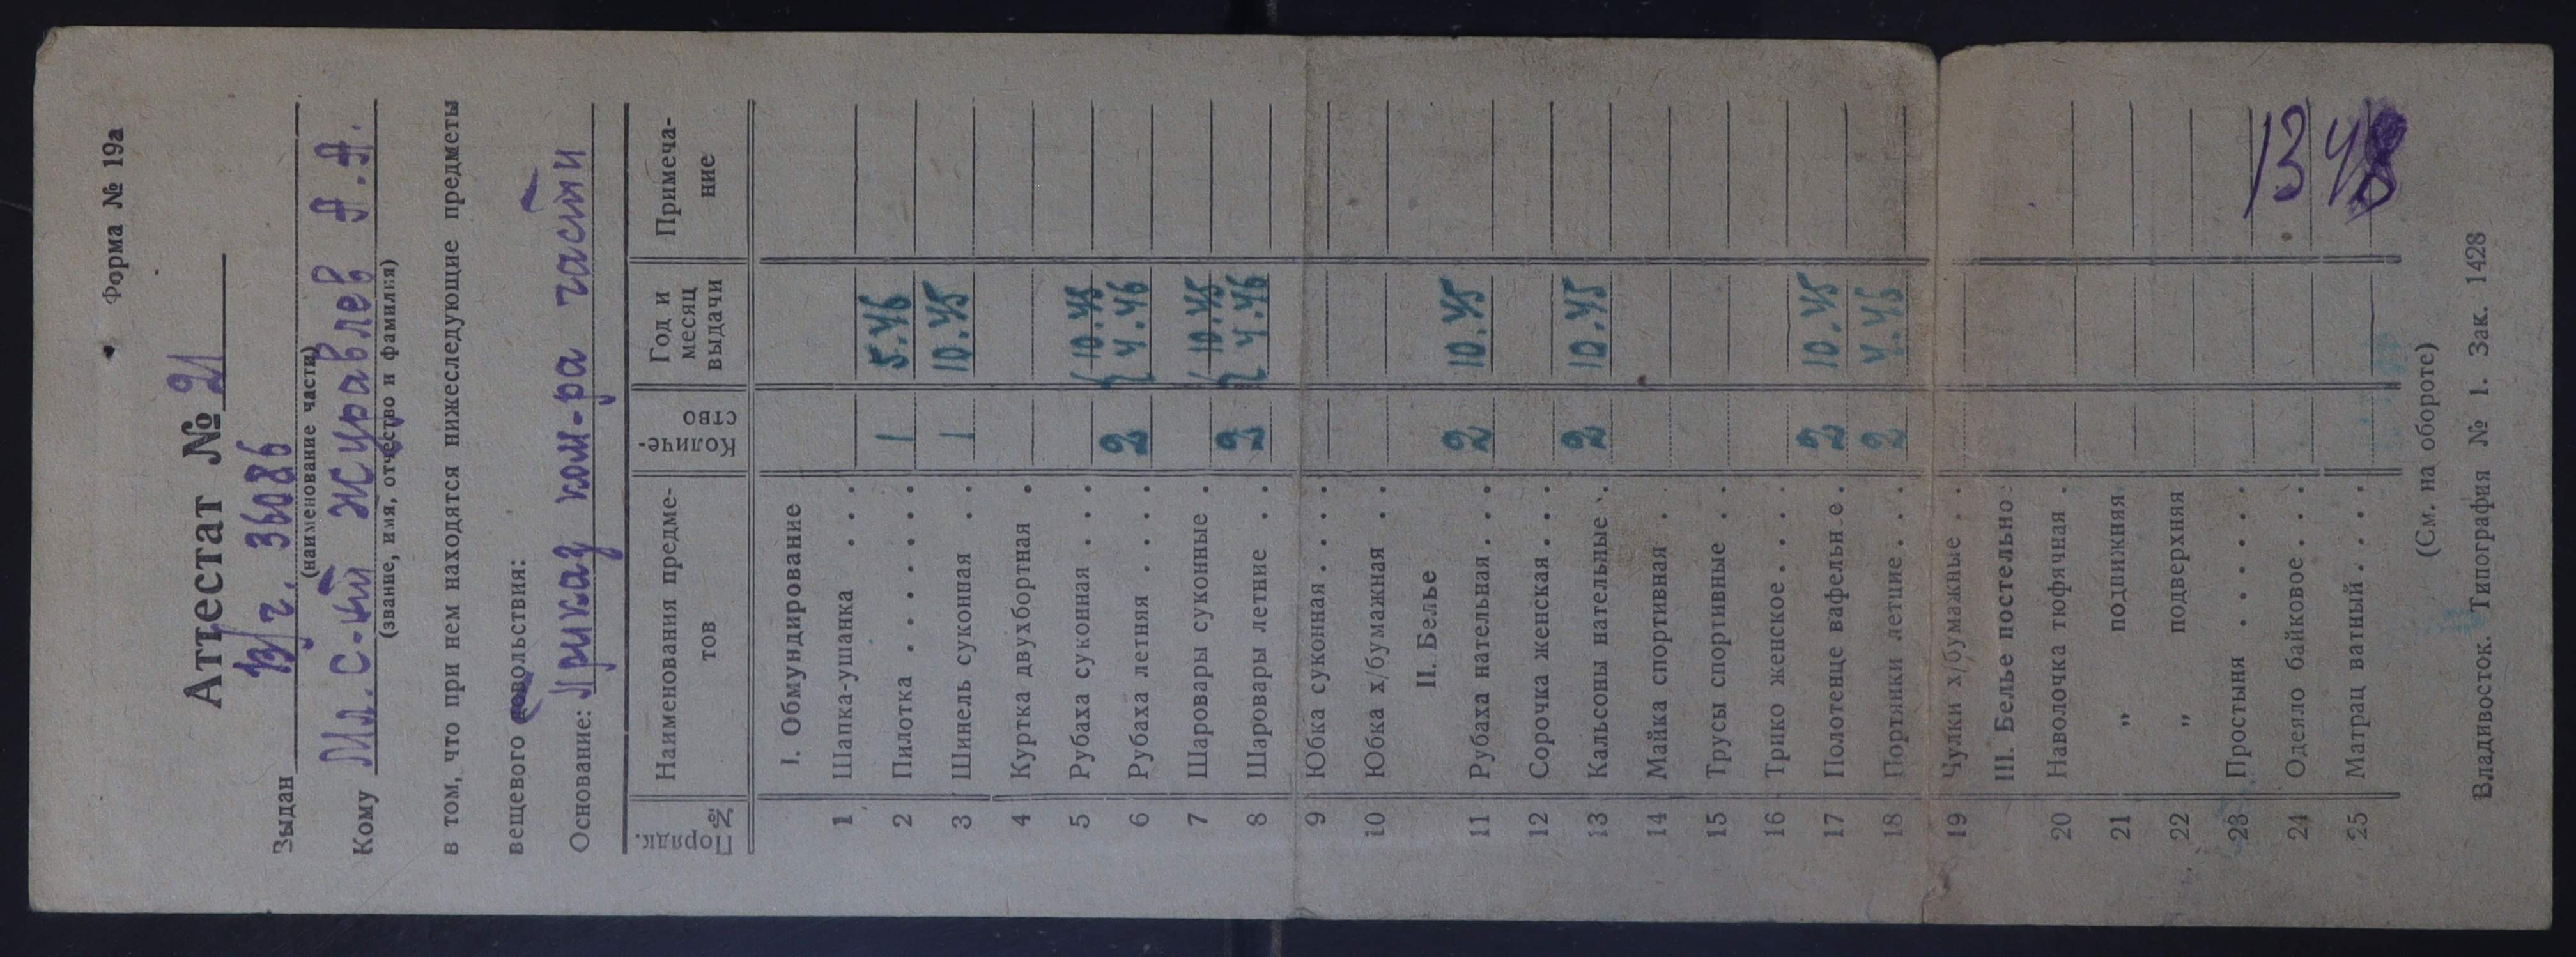 Форма № 19а
Аттестат № 21
Выдан в/ч. 36086
(наименование части)
Кому Мл. с-нт Журавлев А.А.
(звание, имя, отчество и фамилия)
в том, что при нем находятся нижеследующие предметы
вещевого довольствия:
Основание: Приказ ком-ра части
№ Порядк. Наименования предметов Количество Год и месяц выдачи Примечание
I. Обмундирование
1 Шапка-ушанка . . .
2 Пилотка . . . . . . 1 5.46
3 Шинель суконная . . 1 10.45
4 Куртка двухбортная .
5 Рубаха суконная . . . 10.45
6 Рубаха летняя . . . . 2 4.46
7 Шаровары суконные . 10.45
8 Шаровары летние . . 2 4.46
9 Юбка суконная . . . .
10 Юбка х/бумажная . .
II. Белье
11 Рубаха нательная . . . 2 10.45
12 Сорочка женская . . .
13 Кальсоны нательные . . 2 10.45
14 Майка спортивная . .
15 Трусы спортивные . .
16 Трико женское . . . .
17 Полотенце вафельн.е . 2 10.45
18 Портянки летние . . . 2 4.46
19 Чулки х/бумажные . .
III. Белье постельно
20 Наволочка тюфячная .
21 „ подвижняя
22 „ подверхняя
23 Простыня . . . . . .
24 Одеяло байковое . . . 13
25 Матрац ватный . . . . 48
(См. на обороте)
Владивосток. Типография № 1. Зак. 1428